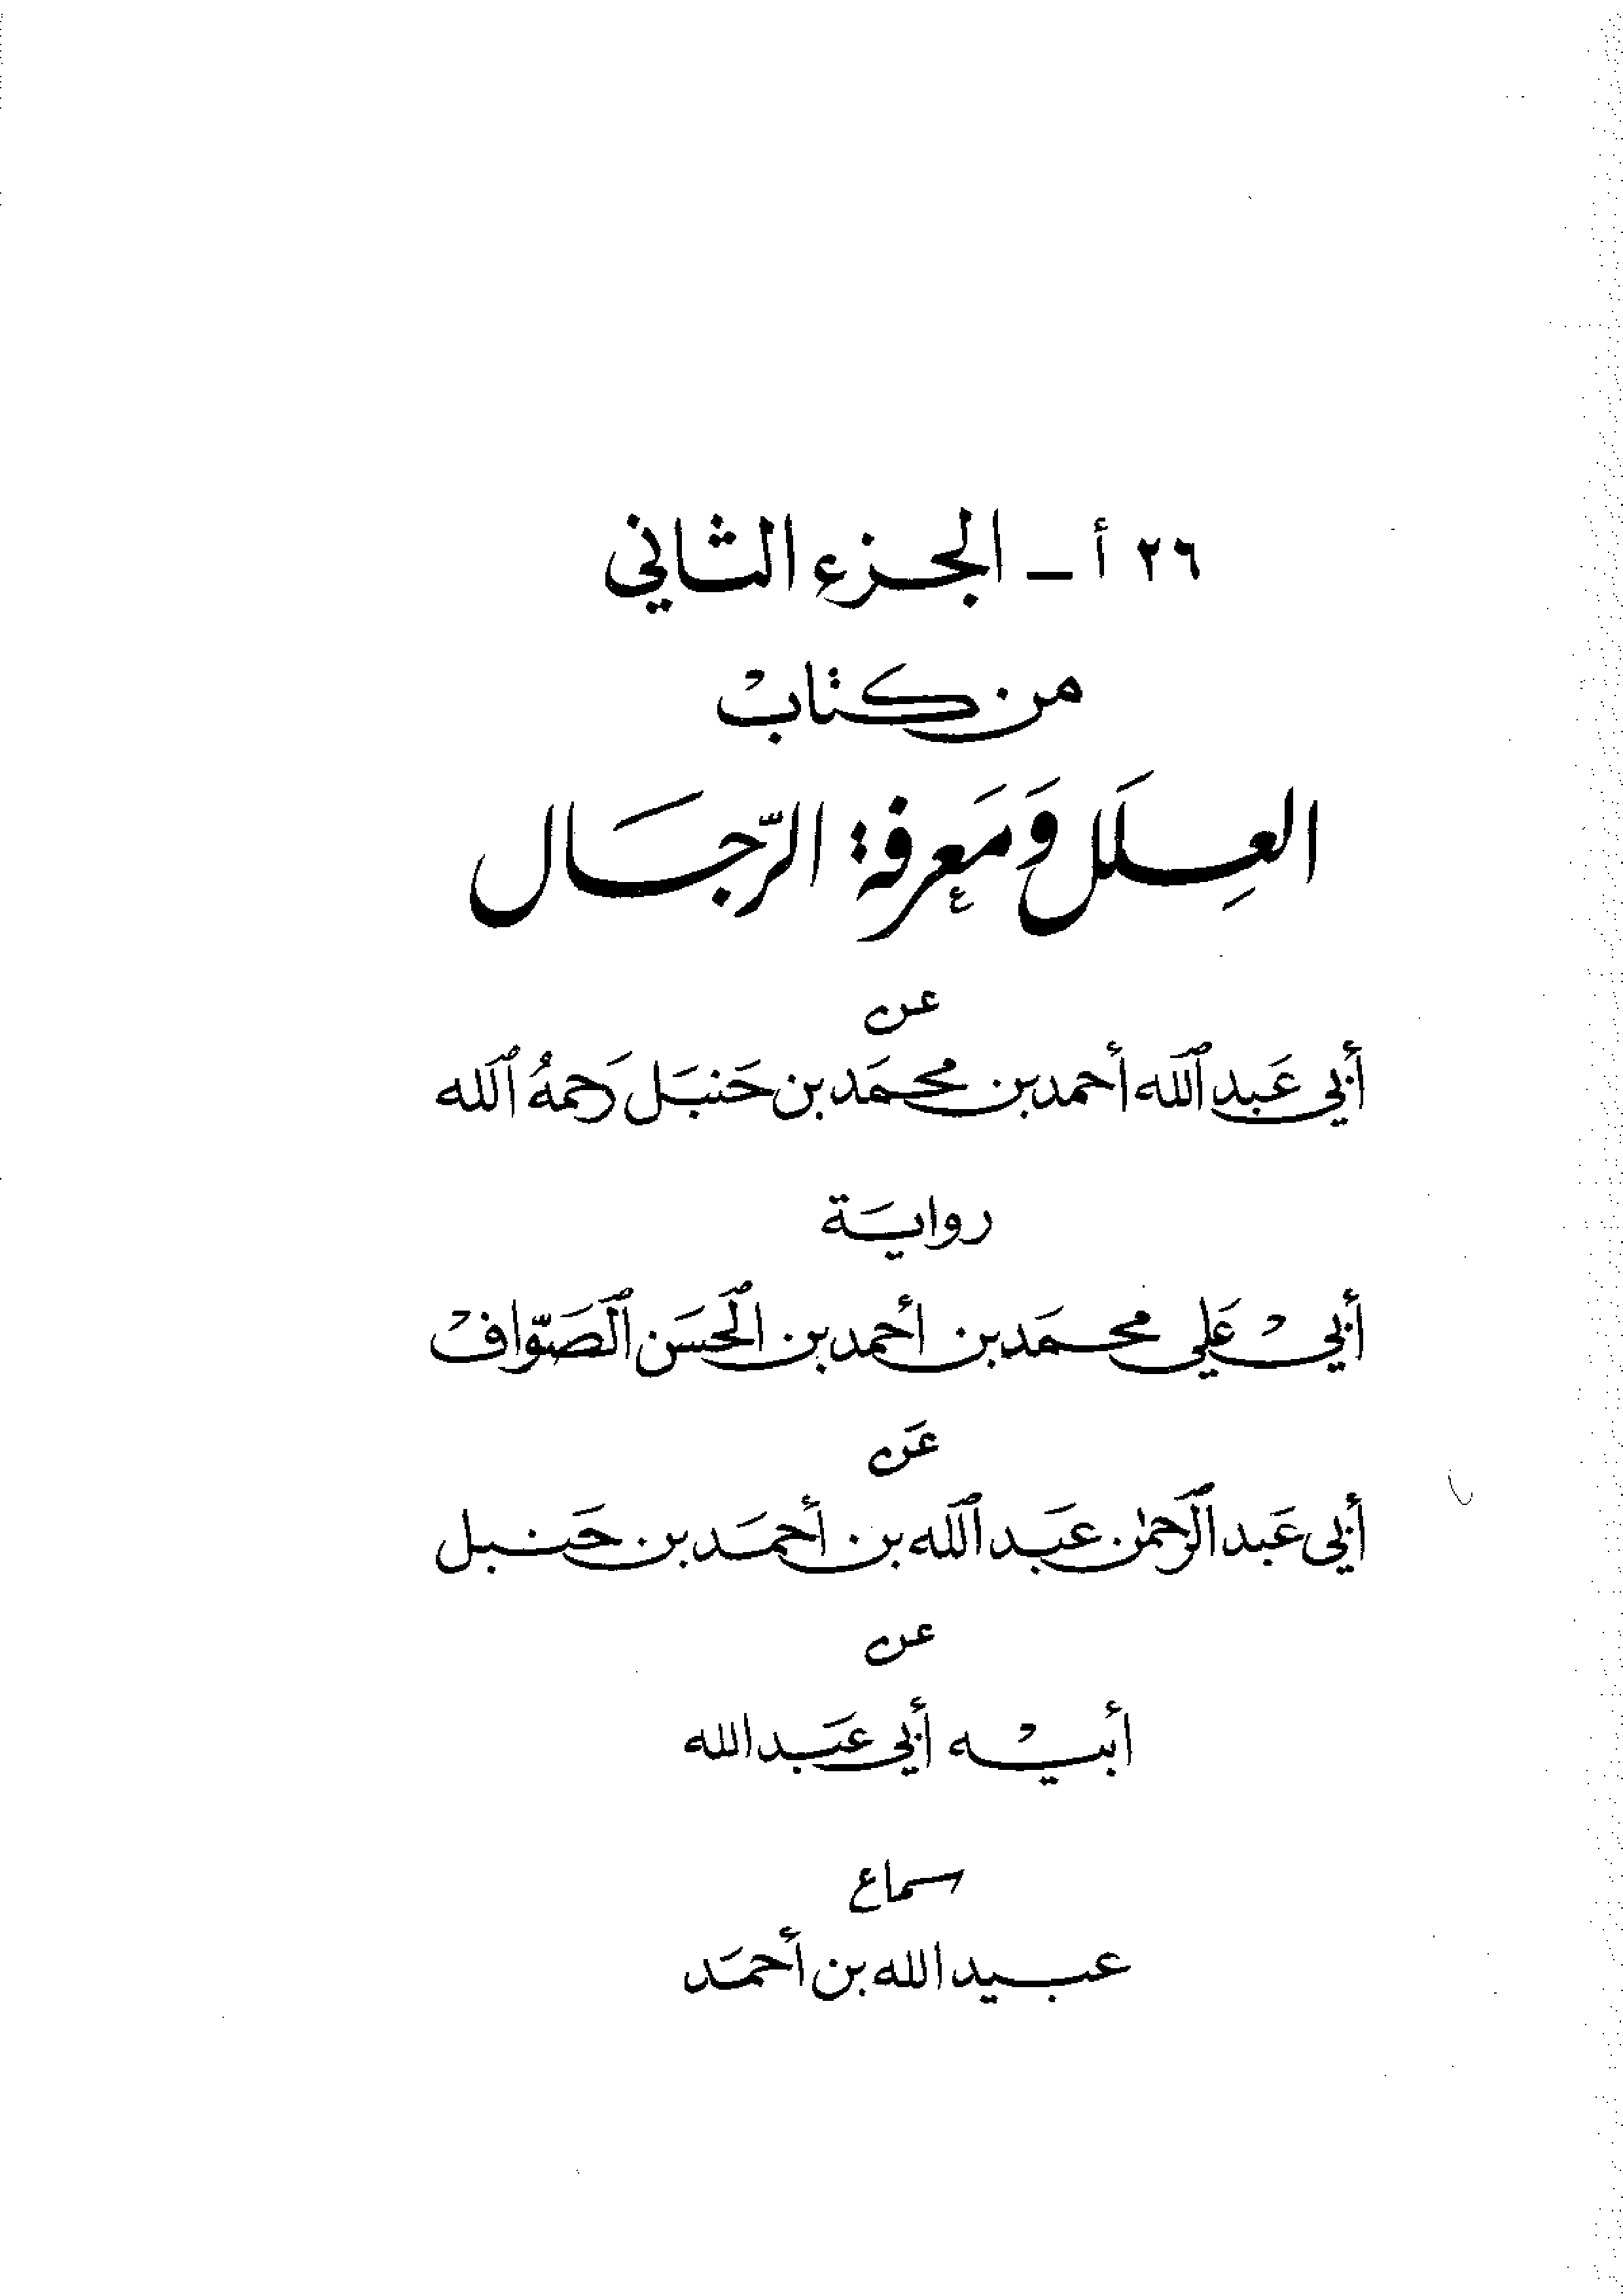 ٢٦ أ ـ الجزء الثاني
من كتابْ
العِلَل وَمَعرفة الرّجَال
عن
أبي عَبد الله أحمد بن محمَد بن حَنبَل رَحمهُ الله
روايَة
أبيْ عَلي محمَد بن أحمد بن الحسَن الصَوّافْ
عَن
أبي عَبد الرَحمٰن عبَد الله بن أحمَد بن حَنبل
عن
أبيْه أبي عبَد الله
سماع
عبيد الله بن أحمَد